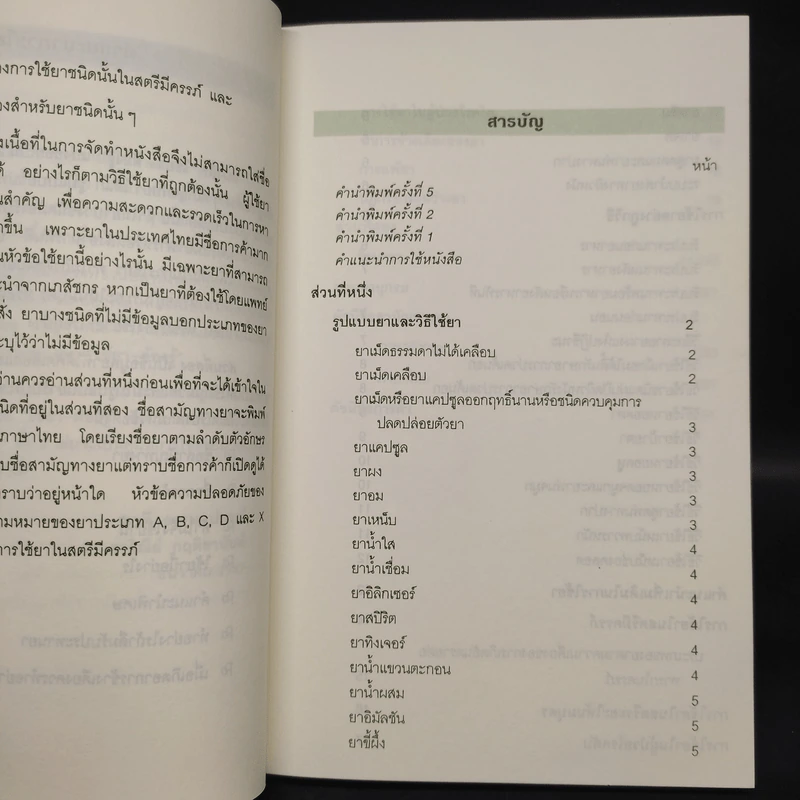 องการใช้ยาชนิดนั้นในสตรีมีครรภ์ และ
องสำหรับยาชนิดนั้น ๆ
งเนื้อที่ในการจัดทำหนังสือจึงไม่สามารถใส่ชื่อ
ด้ อย่างไรก็ตามวิธีใช้ยาที่ถูกต้องนั้น ผู้ใช้ยา
นสำคัญ เพื่อความสะดวกและรวดเร็วในการหา
าขึ้น เพราะยาในประเทศไทยมีชื่อการค้ามาก
นหัวข้อใช้ยานี้อย่างไรนั้น มีเฉพาะยาที่สามารถ
ะนำจากเภสัชกร หากเป็นยาที่ต้องใช้โดยแพทย์
สั่ง ยาบางชนิดที่ไม่มีข้อมูลบอกประเภทของยา
ะบุไว้ว่าไม่มีข้อมูล
อ่านควรอ่านส่วนที่หนึ่งก่อนเพื่อที่จะได้เข้าใจใน
นิดที่อยู่ในส่วนที่สอง ชื่อสามัญทางยาจะพิมพ์
ภาษาไทย โดยเรียงชื่อยาตามลำดับตัวอักษร
บชื่อสามัญทางยาแต่ทราบชื่อการค้าก็เปิดดูได้
ทราบว่าอยู่หน้าใด หัวข้อความปลอดภัยของ
ามหมายของยาประเภท A, B, C, D และ X
การใช้ยาในสตรีมีครรภ์
สารบัญ
หน้า
คำนำพิมพ์ครั้งที่ 5
คำนำพิมพ์ครั้งที่ 2
คำนำพิมพ์ครั้งที่ 1
คำแนะนำการใช้หนังสือ
ส่วนที่หนึ่ง
รูปแบบยาและวิธีใช้ยา 2
ยาเม็ดธรรมดาไม่ได้เคลือบ 2
ยาเม็ดเคลือบ 2
ยาเม็ดหรือยาแคปซูลออกฤทธิ์นานหรือชนิดควบคุมการ
ปลดปล่อยตัวยา 3
ยาแคปซูล 3
ยาผง 3
ยาอม 3
ยาเหน็บ 3
ยาน้ำใส 4
ยาน้ำเชื่อม 4
ยาอิลิกเซอร์ 4
ยาสปิริต 4
ยาทิงเจอร์ 4
ยาน้ำแขวนตะกอน 4
ยาน้ำผสม 5
ยาอิมัลชัน 5
ยาขี้ผึ้ง 5